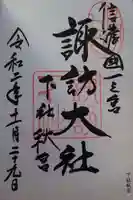 信濃國一之宮
諏訪大社
下社秋宮
令和二年十一月二十九日